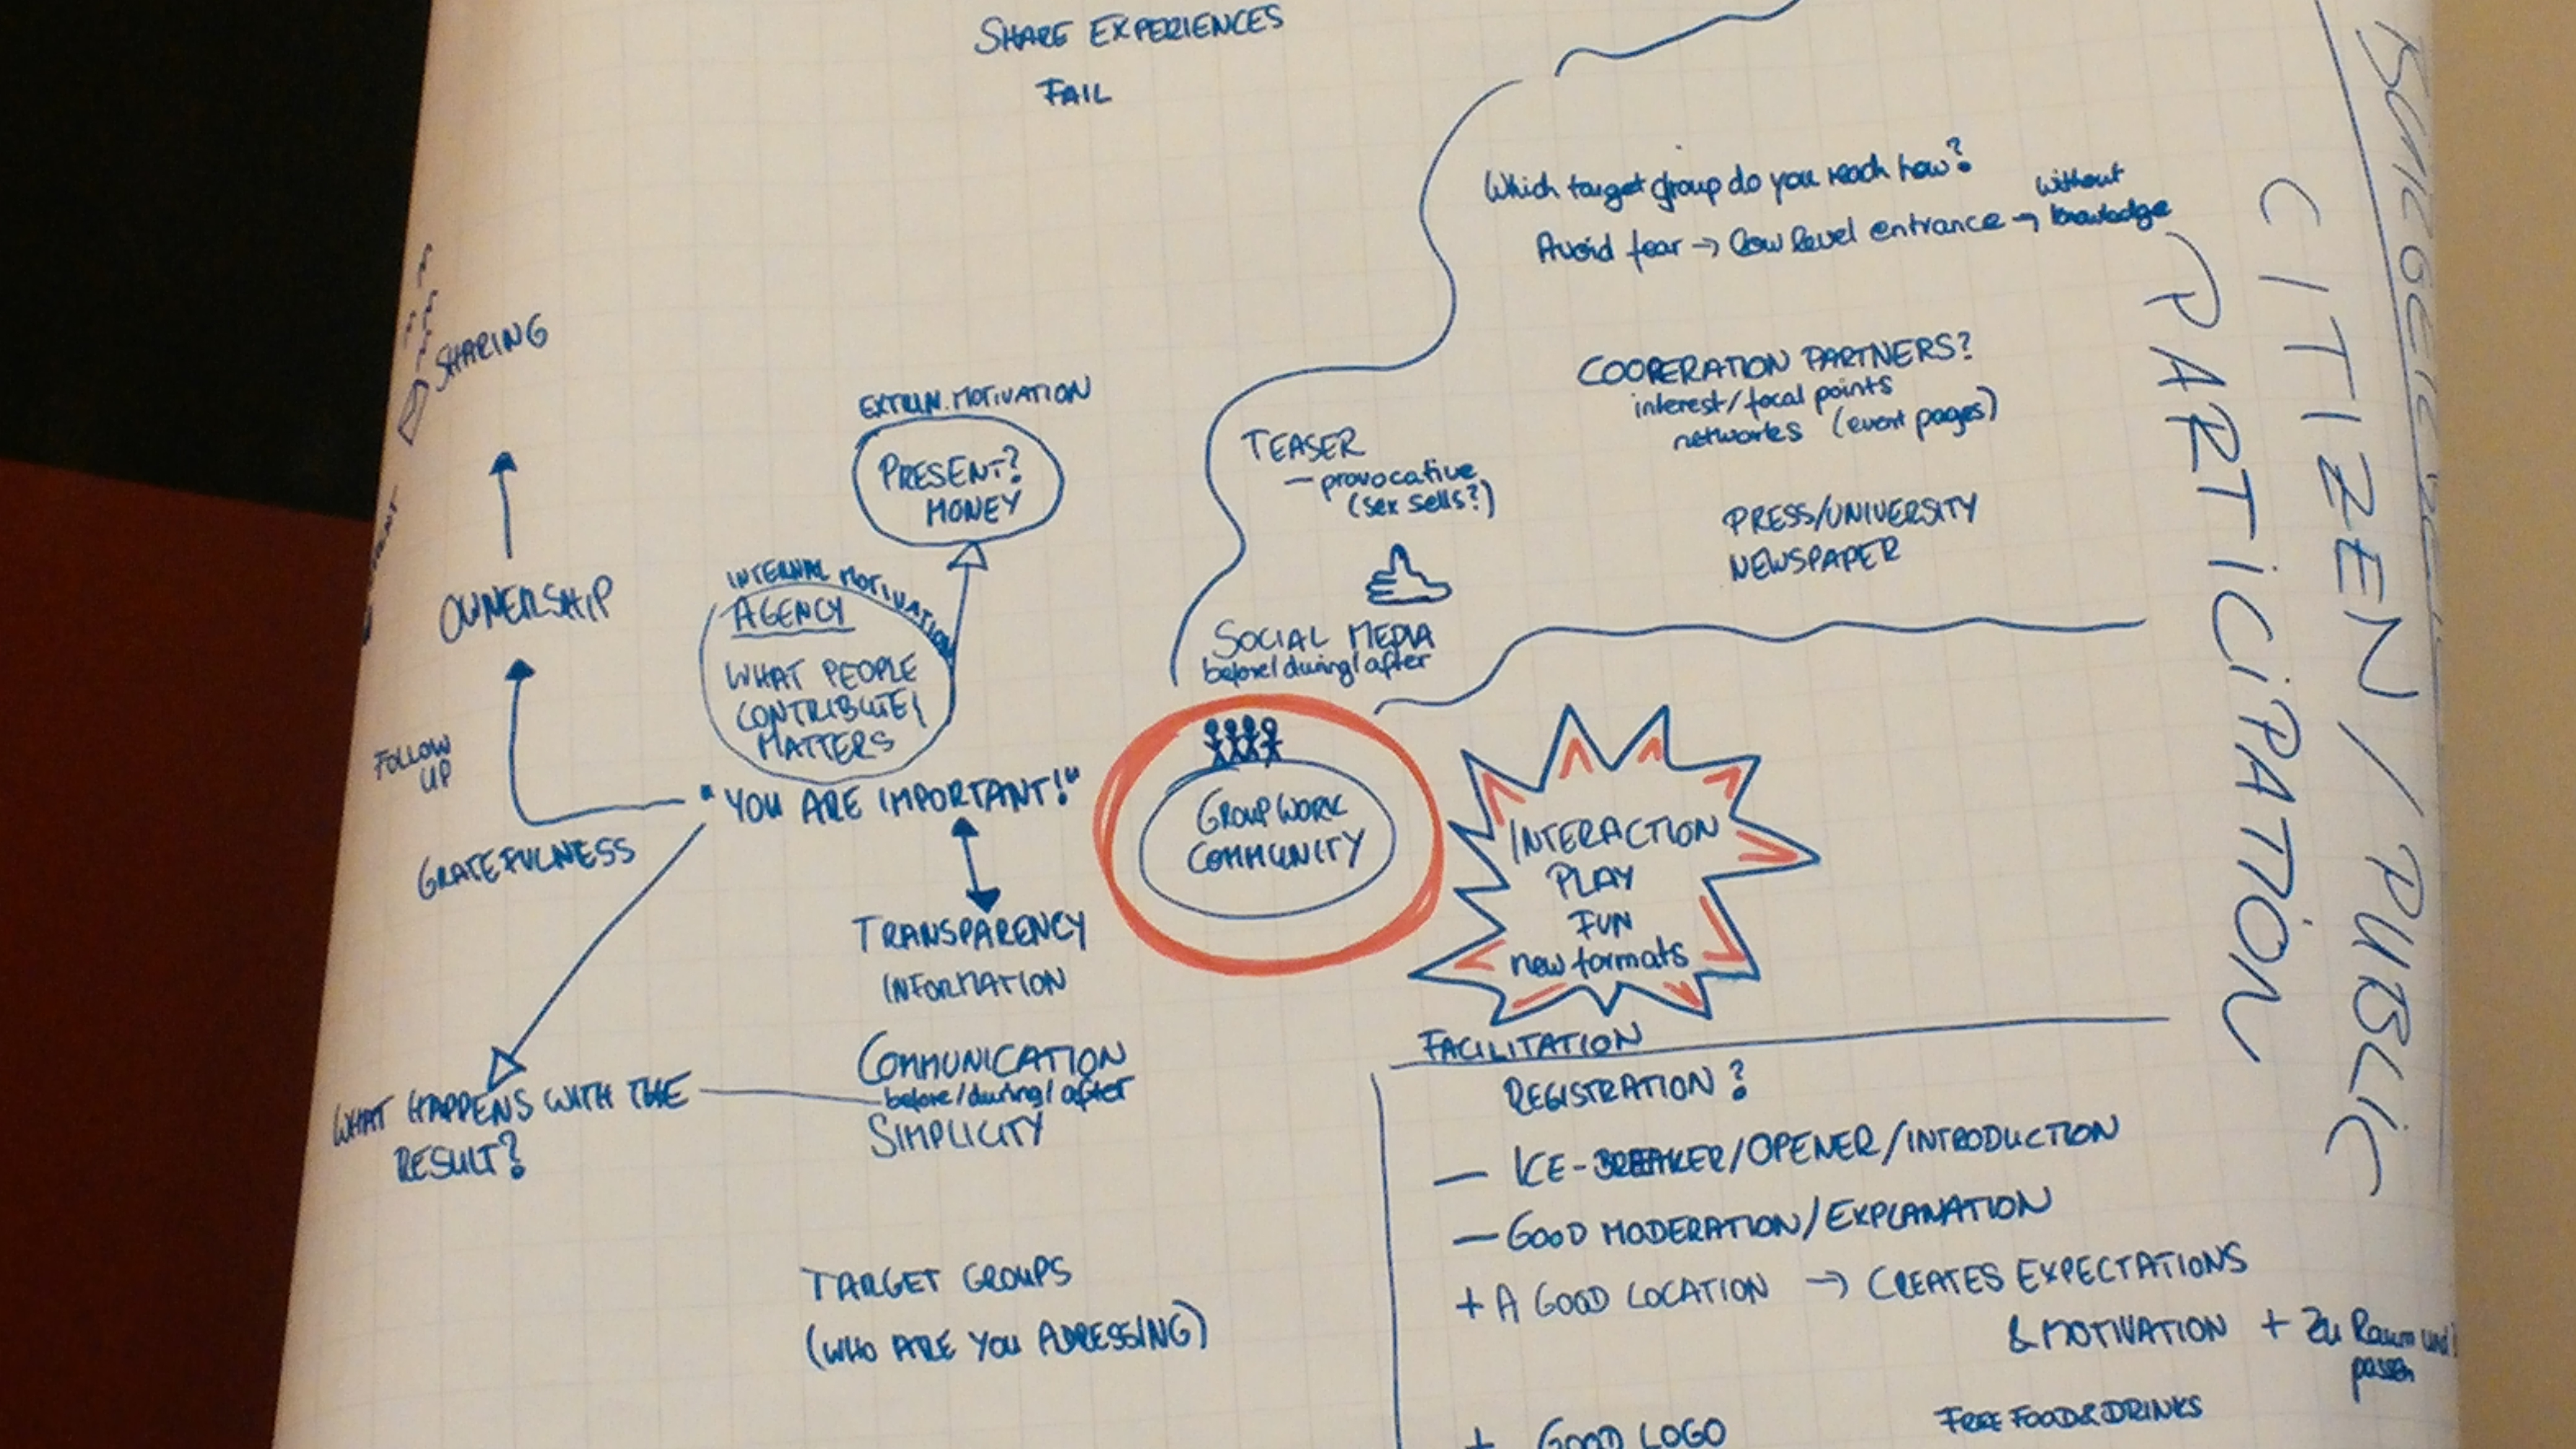 SHARE EXPERIENCES
FAIL
CITIZEN / PUBLIC
PARTICIPATION
Which target group do you reach how?
Avoid fear → low level entrance → without
knowledge
COOPERATION PARTNERS?
interest/focal points
networks (event pages)
PRESS/UNIVERSITY
NEWSPAPER
TEASER
– provocative
(sex sells?)
SOCIAL MEDIA
before/during/after
SHARING
OWNERSHIP
FOLLOW
UP
GRATEFULNESS
EXTRIN. MOTIVATION
PRESENT?
MONEY
INTERNAL MOTIVATION
AGENCY
WHAT PEOPLE
CONTRIBUTE,
MATTERS
"YOU ARE IMPORTANT!"
TRANSPARENCY
INFORMATION
COMMUNICATION
before/during/after
SIMPLICITY
WHAT HAPPENS WITH THE
RESULT?
TARGET GROUPS
(WHO ARE YOU ADRESSING)
GROUPWORK
COMMUNITY
INTERACTION
PLAY
FUN
new formats
FACILITATION
REGISTRATION?
— ICE-BREAKER/OPENER/INTRODUCTION
— GOOD MODERATION/EXPLANATION
+ A GOOD LOCATION → CREATES EXPECTATIONS
& MOTIVATION + Zu Raum und
passen
+ GOOD LOGO
FREE FOOD & DRINKS